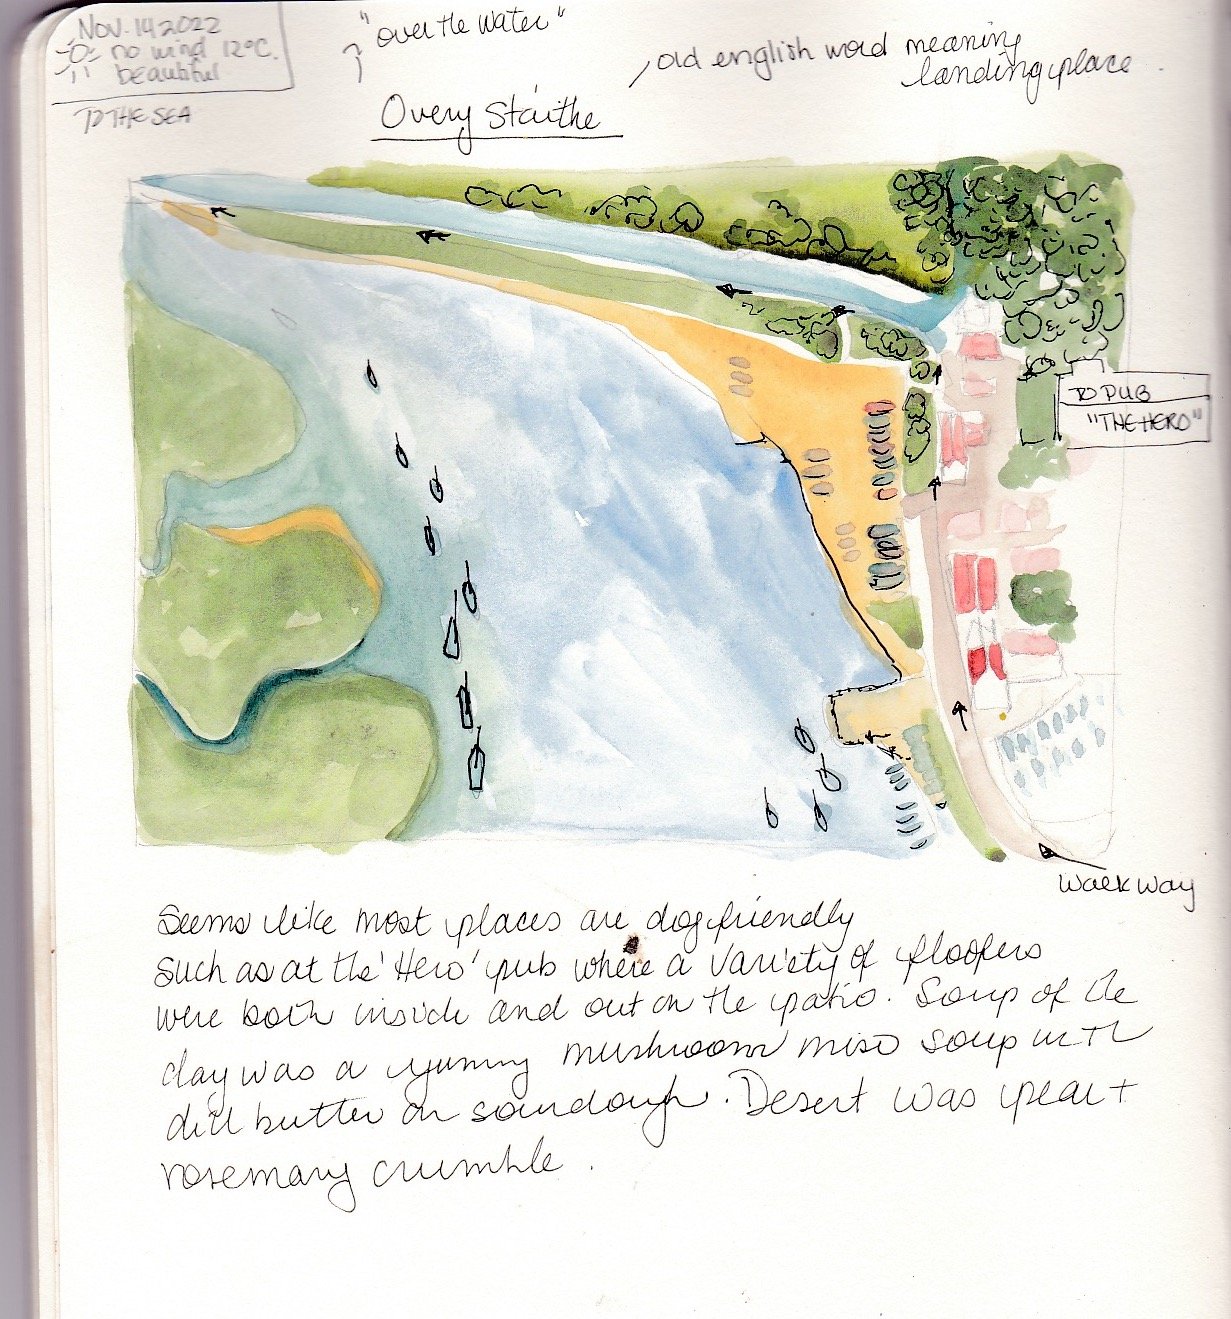 Nov. 14 2022
no wind 12°C.
beautiful
TO THE SEA
"over the water"
old english word meaning
landing place.
Overy Staithe
TO PUB
"THE HERO"
Walkway
Seems like most places are dog friendly
such as at the 'Hero' pub where a variety of floofers
were both inside and out on the patio. Soup of the
day was a yummy mushroom miso soup with
dill butter on sourdough. Desert was pear +
rosemary crumble.